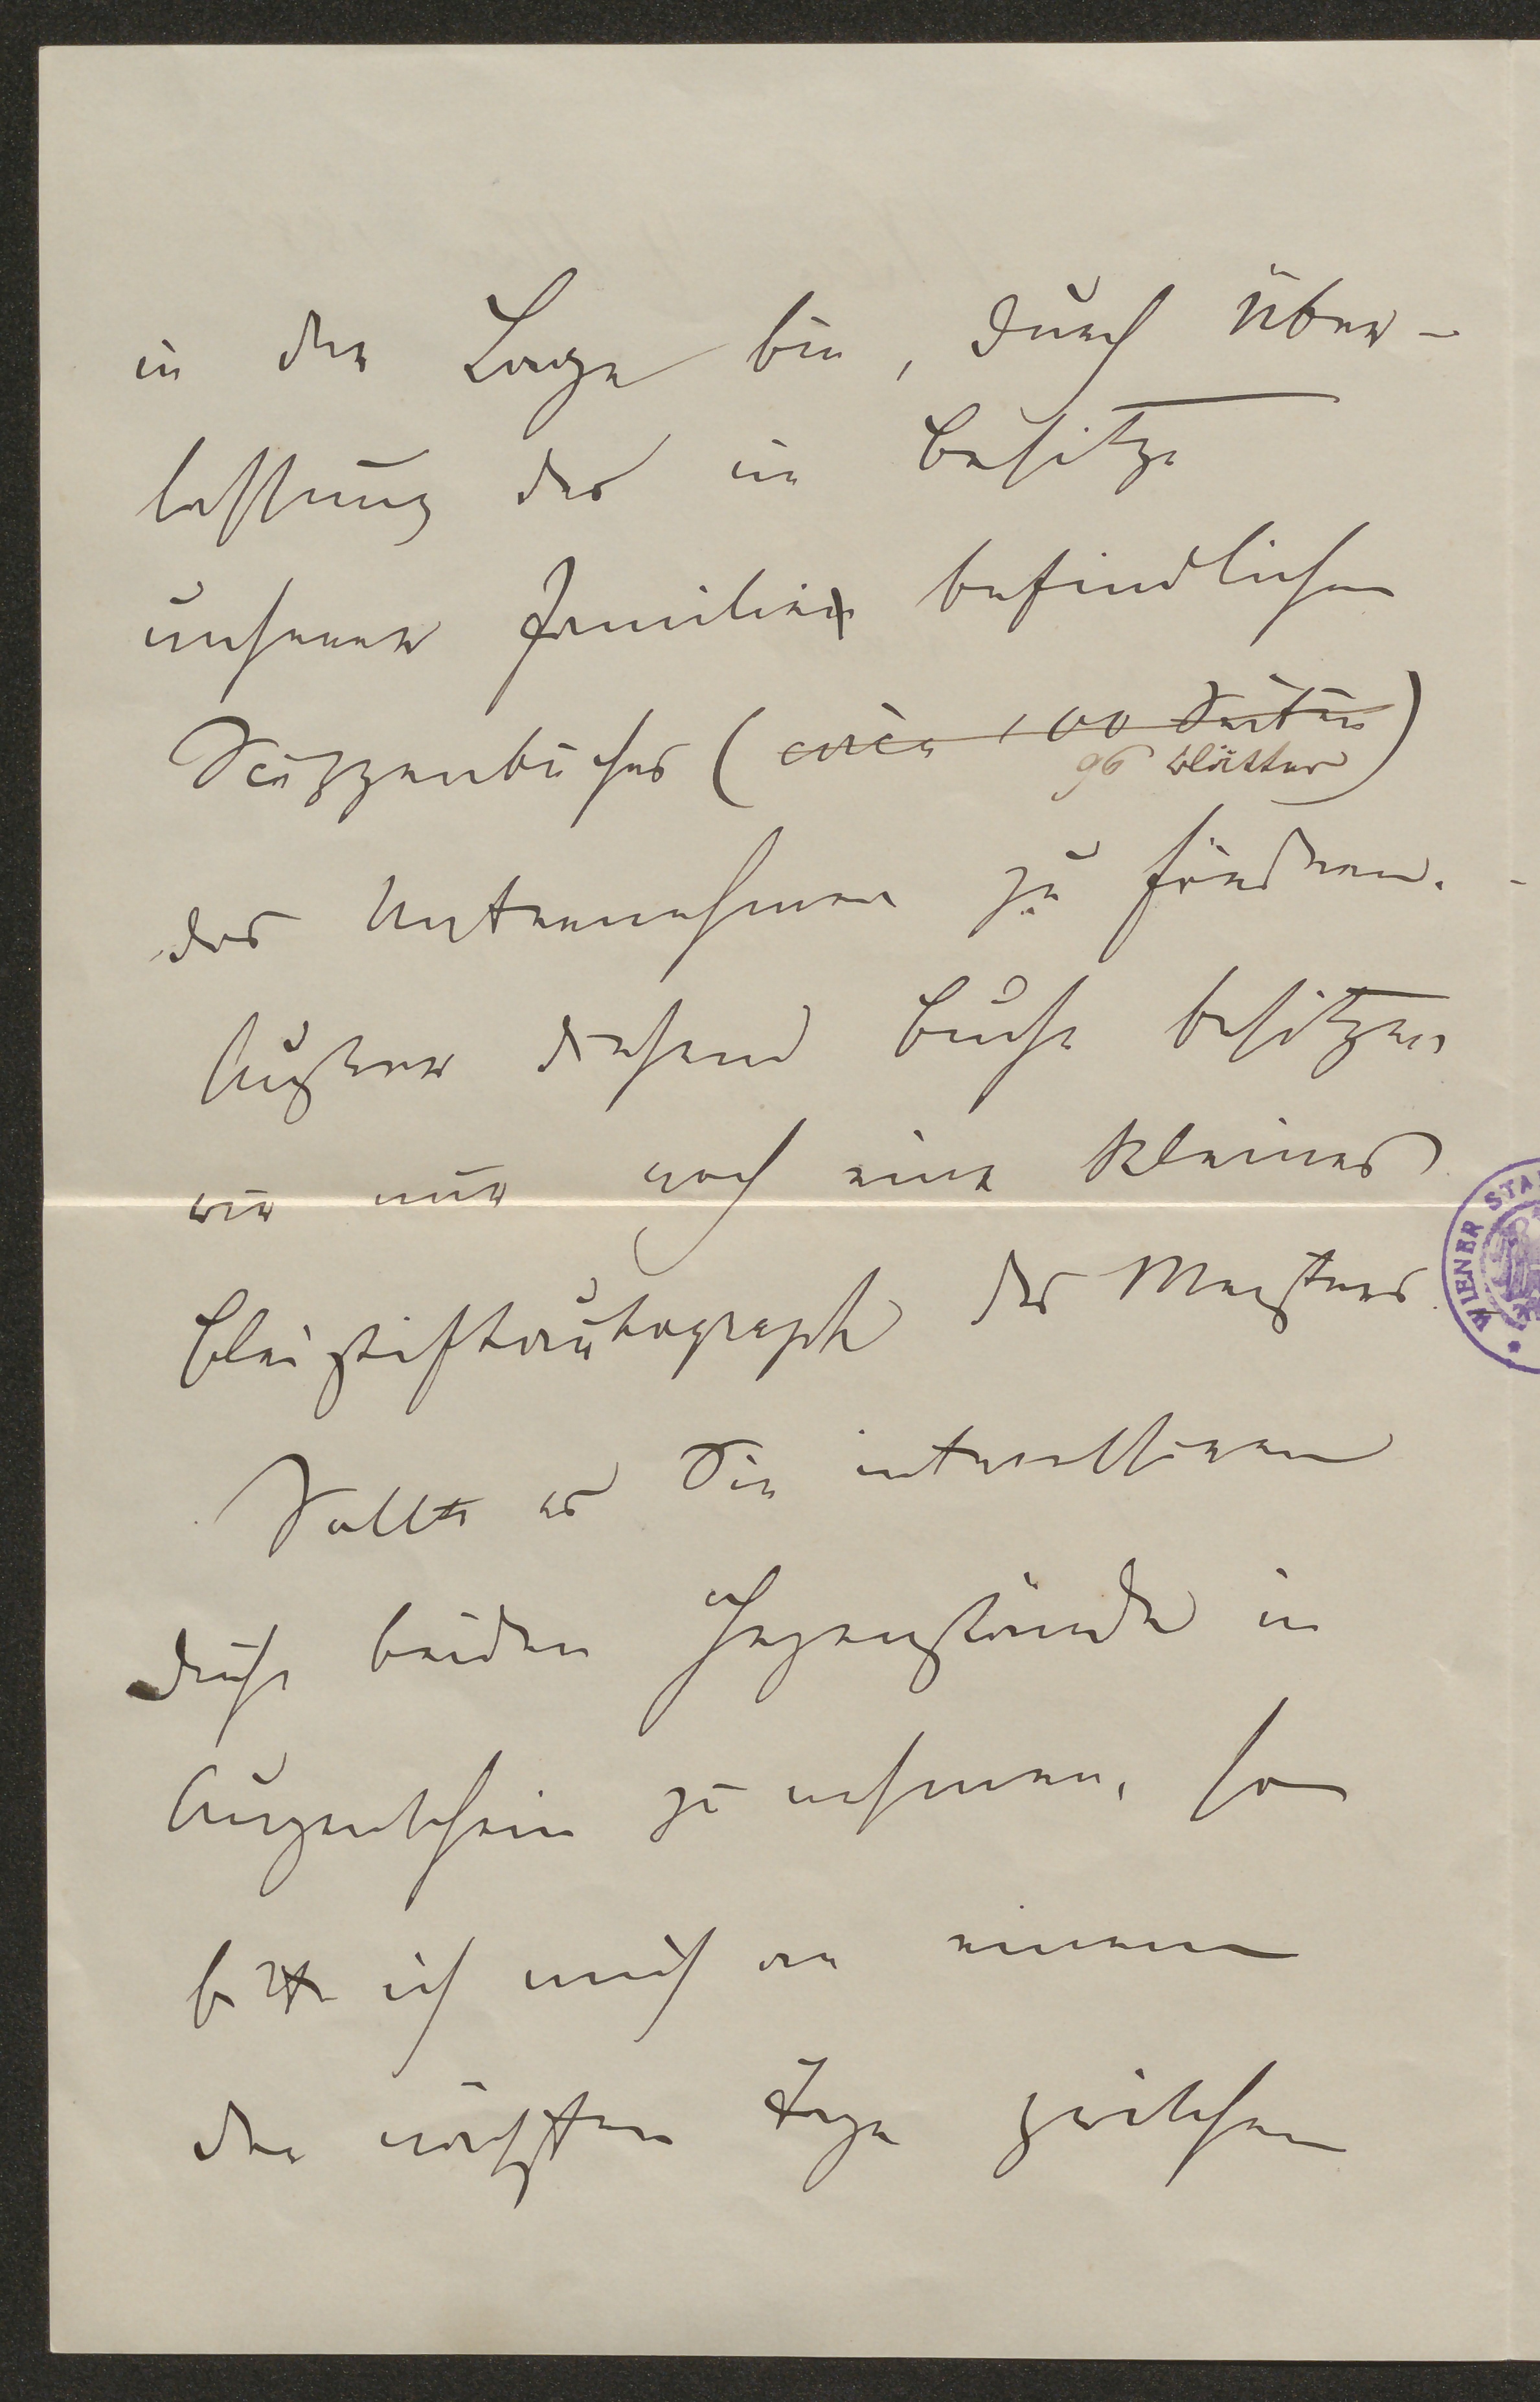 in der Lage bin, durch Über-
lassung des in Besitze
unserer Familie befindlichen
Skizzenbuches (circa 100 Seiten)
96 Blätter
das Unternehmen zu fördern. -
Ausser diesem Buche besitzen
wir nur noch eine kleines
Bleistiftautograph des Meisters.
Sollte es Sie interessieren
diese beiden Gegenstände in
Augenschein zu nehmen, so
bitte ich mich an einem
der nächsten Tage zwischen
WIENER STA